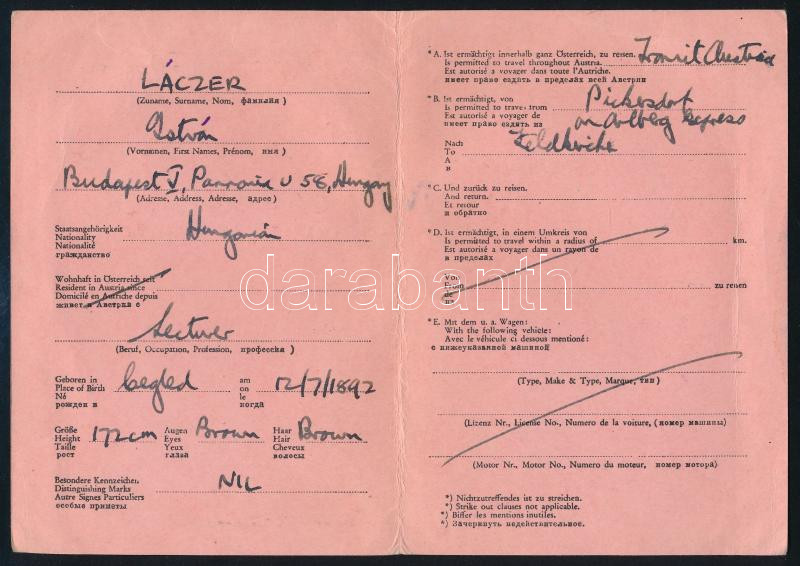 LÁCZER
(Zuname, Surname, Nom, фамилия )
István
(Vornamen, First Names, Prénom, имя )
Budapest V, Pannonia u 58, Hungary
(Adresse, Address, Adresse, адрес )
Staatsangehörigkeit
Nationality
Nationalité
гражданство
Hungarian
Wohnhaft in Österreich seit
Resident in Austria since
Domicilé en Autriche depuis
живет в Австрии с
Lecturer
(Beruf, Occupation, Profession, профессия )
Geboren in
Place of Birth
Né
рожден в
Cegled
am
on
le
когда
12/7/1892
Größe
Height
Taille
рост
172cm
Augen
Eyes
Yeux
глаза
Brown
Haar
Hair
Cheveux
волосы
Brown
Besondere Kennzeichen
Distinguishing Marks
Autre Signes Particuliers
особые приметы
NIL
*A. Ist ermächtigt innerhalb ganz Österreich, zu reisen.
Is permitted to travel throughout Austria.
Est autorisé a voyager dans toute l'Autriche.
имеет право ездить в пределах всей Австрии
Transit Austria
*B. Ist ermächtigt, von
Is permitted to travel from
Est autorisé a voyager de
имеет право ездить из
on Arlberg Express
Nach
To
A
в
Feldkirche
*C. Und zurück zu reisen.
And return.
Et retour
и обратно
*D. Ist ermächtigt, in einem Umkreis von
Is permitted to travel within a radius of
Est autorisé a voyager dans un rayon de
в пределах
km.
Von
From
de
из
zu reisen
*E. Mit dem u. a. Wagen:
With the following vehicle:
Avec le véhicule ci dessous mentioné:
с нижеуказанной машиной
(Type, Make & Type, Marque, тип )
(Lizenz Nr., License No., Numero de la voiture, (номер машины)
(Motor Nr., Motor No., Numero du moteur, номер мотора)
*) Nichtzutreffendes ist zu streichen.
*) Strike out clauses not applicable.
*) Biffer les mentions inutiles.
*) Зачеркнуть недействительное.
darabanth